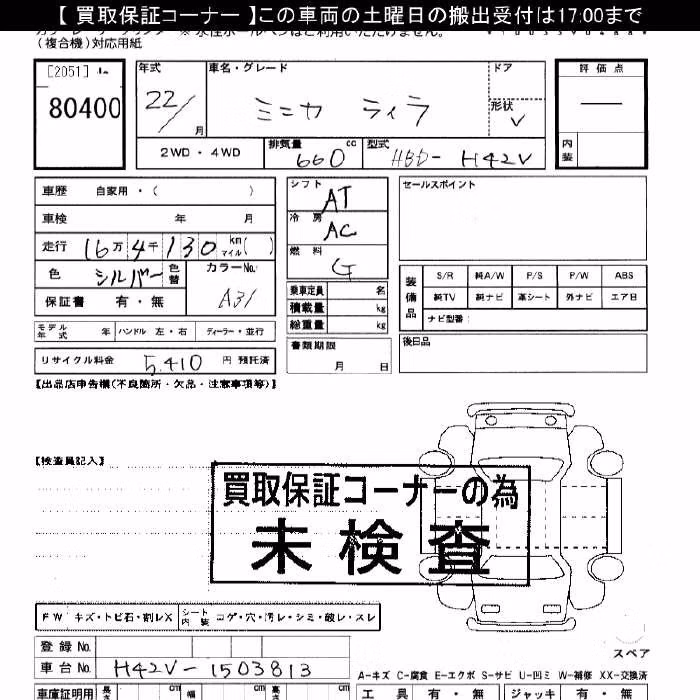 【 買取保証コーナー 】この車両の土曜日の搬出受付は17:00まで
(複合機)対応用紙
[2051]
80400
年式 車名・グレード ドア 評価点
22/ 月 ミニカ ライラ 形状 V
2WD・4WD 排気量 660 cc 型式 HBD-H42V 内装
車歴 自家用・( )
車検 年 月
走行 16万4千130 km マイル( )
色 シルバー 色替 カラーNo. A31
保証書 有・無
モデル年式 年 ハンドル 左・右 ディーラー・並行
リサイクル料金 5,410 円 預託済
シフト AT
冷房 AC
燃料 G
乗車定員 名
積載量 kg
総重量 kg
書類期限
月 日
セールスポイント
装備品 S/R 純A/W P/S P/W ABS
純TV 純ナビ 革シート 外ナビ エア日
ナビ型番:
後日品
【出品店申告欄(不良箇所・欠品・注意事項等)】
【検査員記入】
買取保証コーナーの為
未検査
FW キズ・トビ石・割レX シート内装 コゲ・穴・汚レ・シミ・敵レ・スレ
登録No.
車台No. H42V-1503813
スペア
A-キズ C-腐食 E-エクボ S-サビ U-凹ミ W-補修 XX-交換済
車庫証明用 長さ cm 幅 cm 高さ cm
工具 有・無 ジャッキ 有・無